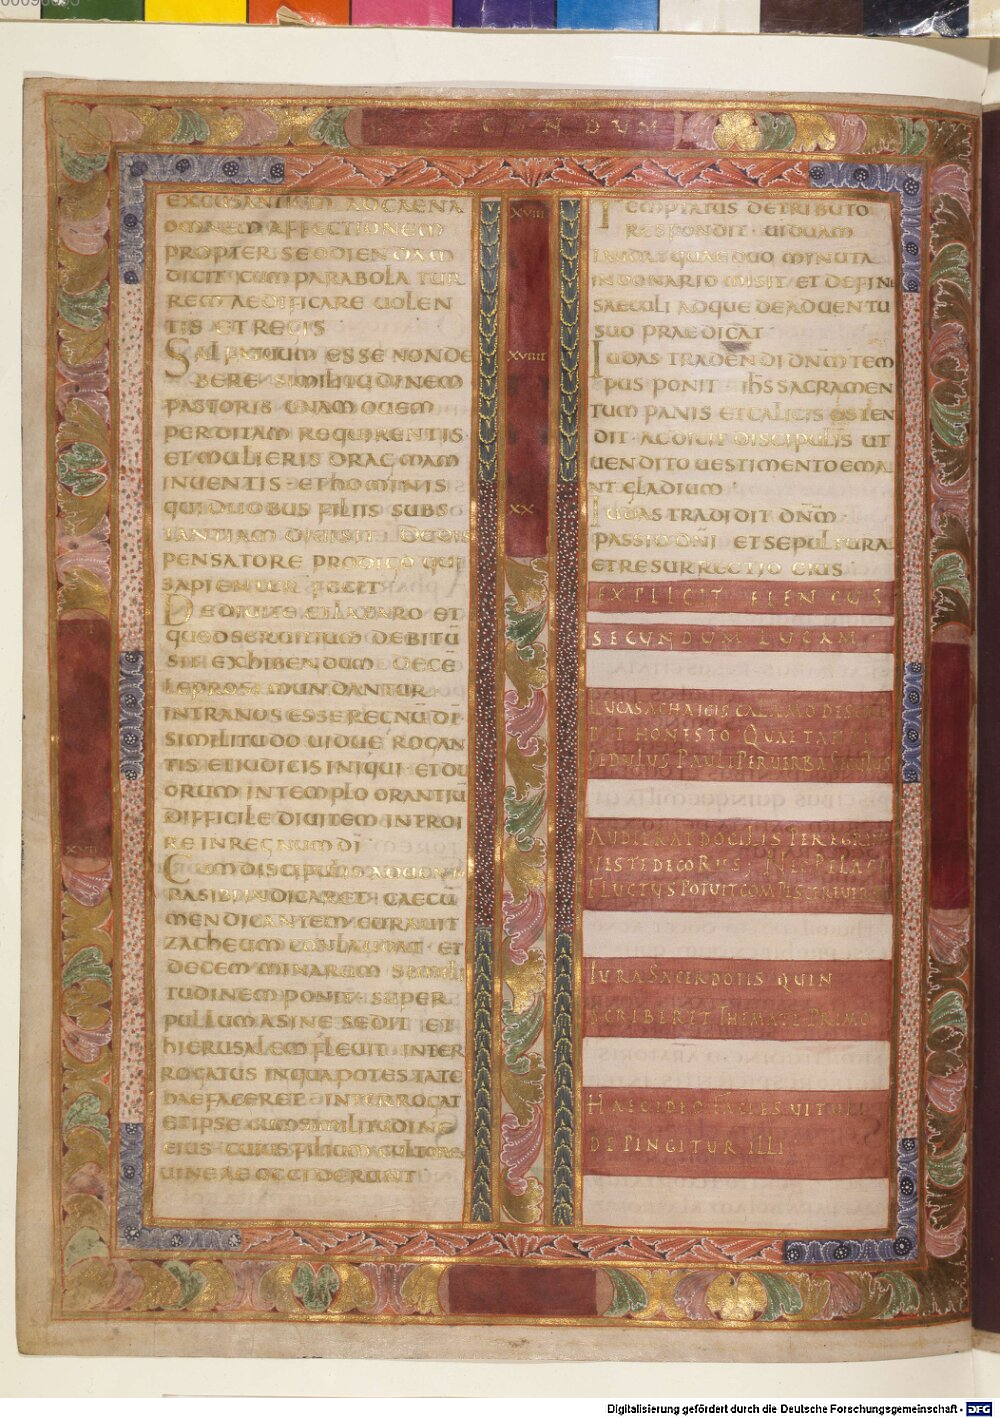 SECUNDUM
EXCUSANTIUM AD CAENA
OMNEM AFFECTIONEM
PROPTER SE ODIENDAM
DICIT CUM PARABOLA TUR
REM AEDIFICARE UOLEN
TIS ET REGIS
SAL FATUUM ESSE NON DE
BERE SIMILITUDINEM
PASTORIS UNAM OUEM
PERDITAM REQUIRENTIS
ET MULIERIS DRAGMAM
INUENTIS ET HOMINIS
QUI DUOBUS FILIIS SUBS
TANTIAM DIUISIT DE DIS
PENSATORE PRODIGO QUI
SAPIENTER FECIT
XVII
DE DIUITE ET LAZARO ET
QUOD SERUITIUM DEBITŪ
SIT EXHIBENDUM DECĒ
LEPROSI MUNDANTUR
INTRA NOS ESSE REGNŪ DĪ
SIMILITUDO UIDUE ROGAN
TIS ET IUDICIS INIQUI ET DU
ORUM IN TEMPLO ORANTIŪ
DIFFICILE DIUITEM INTROI
RE IN REGNUM DĪ
XVIII
CUM DISCIPULIS
CAECŪ
MENDICANTEM CURAUIT
ZACHEUM CONLAUDAT ET
DECEM MINARUM SIMILI
TUDINEM PONIT SUPER
PULLUM ASINE SEDIT ET
HIERUSALEM FLEUIT INTER
ROGATUS IN QUA POTESTATE
HAEC FACERET INTERROGAT
ET IPSE CUM SIMILITUDINE
EIUS CUIUS FILIUM CULTORES
UINEAE OCCIDERUNT
XVIII
TEMPTATUS DE TRIBUTO
RESPONDIT UIDUAM
LAUDAT QUAE DUO MINUTA
IN DONARIO MISIT ET DE FINE
SAECULI ADQUE DE ADUENTU
SUO PRAEDICAT
XVIIII
IUDAS TRADENDI DNM TEM
PUS PONIT IHS SACRAMEN
TUM PANIS ET CALICIS OSTEN
DIT AC DICIT DISCIPULIS UT
UENDITO UESTIMENTO EMA
NT GLADIUM
XX
IUDAS TRADIDIT DNM
PASSIO DNI ET SEPULTURA
ET RESURRECTIO EIUS
EXPLICIT ELENCUS
SECUNDUM LUCAM
LUCAS ACHAICIS CALAMO DESCRI
BIT HONESTO QUAE TANTI
SEDULUS PAULI PER UERBA
AUDIERAT DOCILIS PEREGRI
UESTE DECORUS
FLUCTUS POTUIT COMPESCERE
IURA SACERDOTIS QUIN
SCRIBERET THEMATE PRIMO
HAEC IDEO FACIES UITULI
DEPINGITUR ILLI
Digitalisierung gefördert durch die Deutsche Forschungsgemeinschaft - DFG